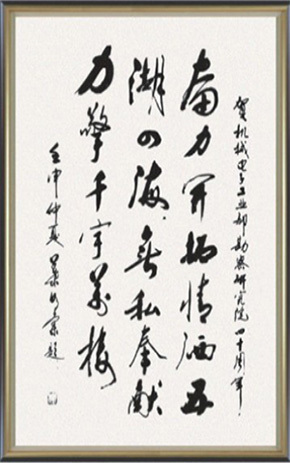 贺机械电子工业部勘察研究院四十周年!
奮力开拓情洒五
湖四海,無私奉献
力擎千宇萬楼
壬申仲夏 题